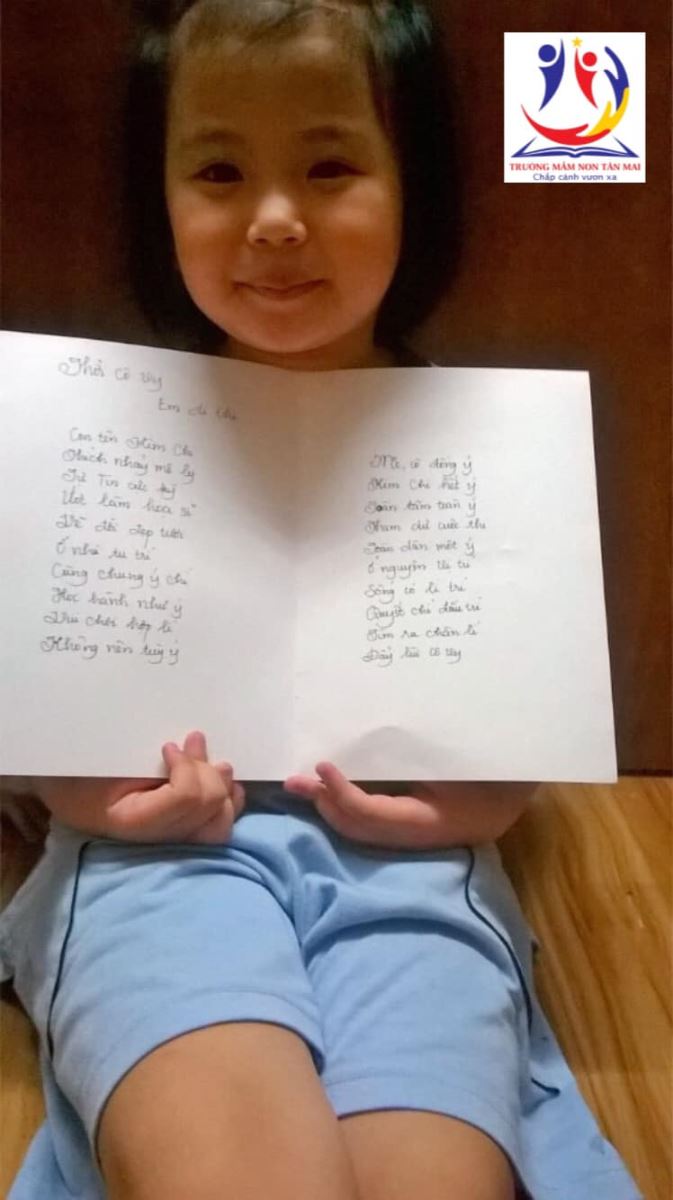 TRƯỜNG MẦM NON TÂN MAI
Chắp cánh vươn xa
Thời cô Vy
Em đi thi
Con tên Kim Chi
Thích nhảy mê ly
Tự Tin cực kỳ
Ước làm họa sĩ
Vẽ đời đẹp tươi
Ở nhà tu trí
Cùng chung ý chí
Học hành như ý
Vui chơi hợp lí
Không nên tuỳ ý
Mẹ, cô đồng ý
Kim Chi hết ý
Toàn tâm toàn ý
Tham dự cuộc thi
Toàn dân một ý
Ở nguyên vị trí
Sống có lí trí
Quyết chí đấu trí
Tìm ra chân lí
Đẩy lùi cô Vy